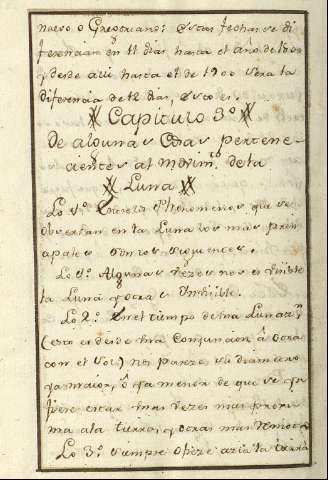 nuevo o Gregoriano: estas fechas se di
ferencian en 11 dias hasta el año de 1800
y desde aqui hasta el de 1900 sera la
diferencia de 12 dias, esto es.
Capitulo 3º
De algunas Cosas pertene-
cientes al Movim.to de la
Luna
Lo 1º. Phenomenos que se
observan en la Luna los mas prin
cipales son los siguientes.
Lo 1º. Algunas vezes nos es visible
la Luna y otras invisible.
Lo 2º. En el tiempo de una Lunaz.n
(esto es desde una Conjuncion â otra
con el Sol) nos pareze su diametro
ya maior, ô ya menor de que se in
fiere estar unas vezes mas proxi
ma a la tierra, y otras mas remota
Lo 3º. siempre ofreze azia la tierra